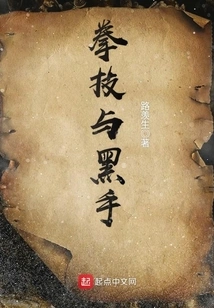 拳技与黑手
路羡生 著
起点 起点中文网